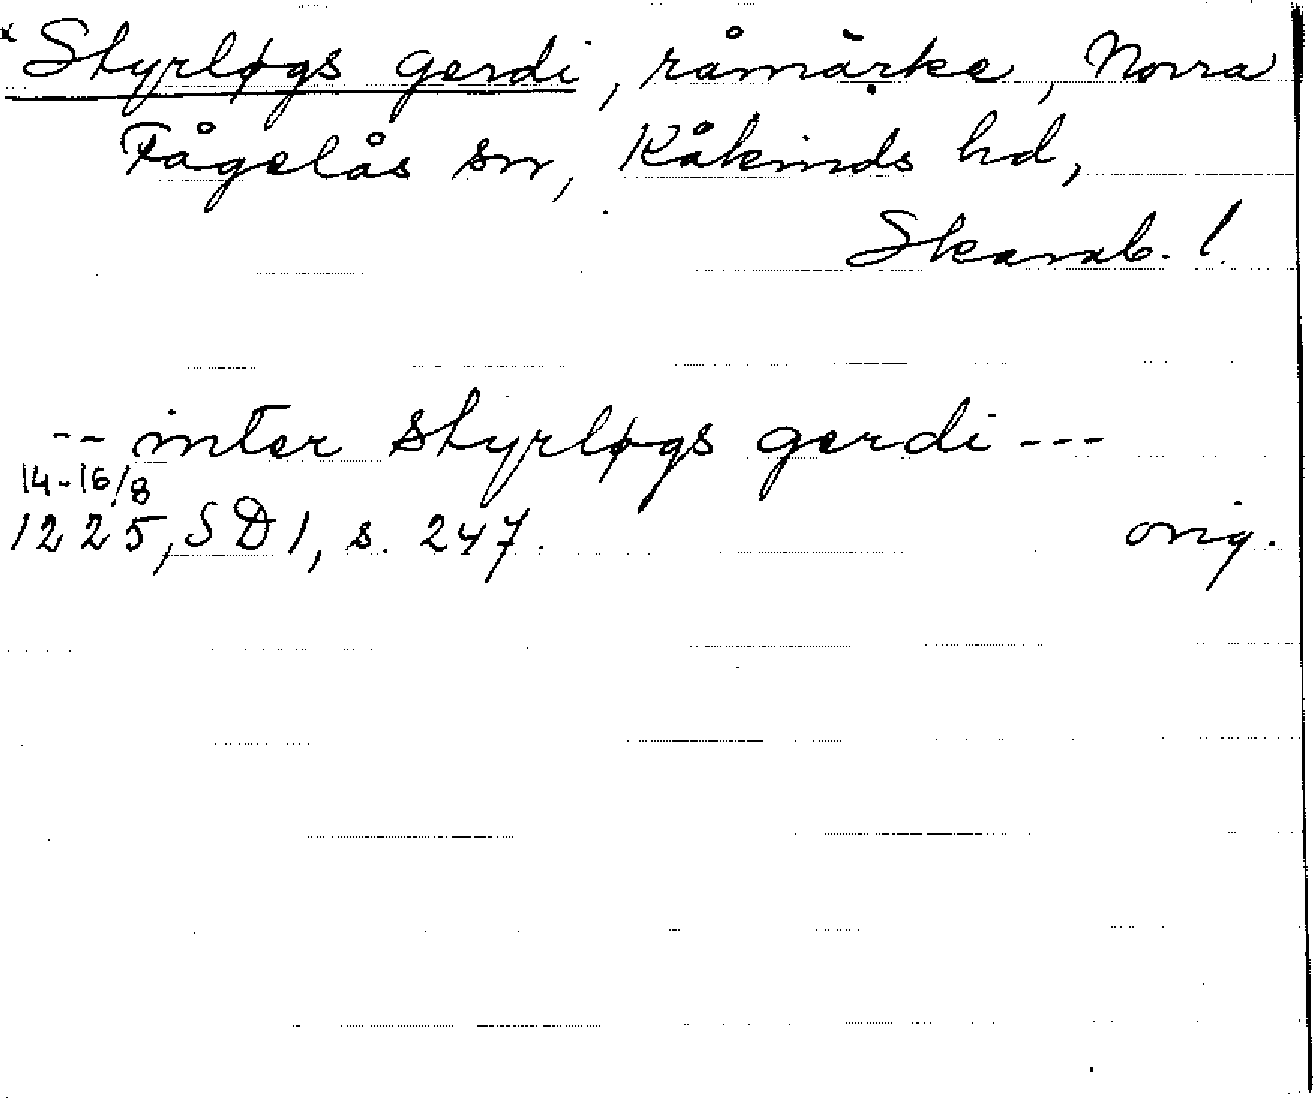 *Styrløgs gerdi, råmärke, Norra
Fågelås sn, Kåkinds hd,
Skarab. l.
-- inter styrløgs gerdi ---
14-16/8
1225, SD 1, s. 247. orig.